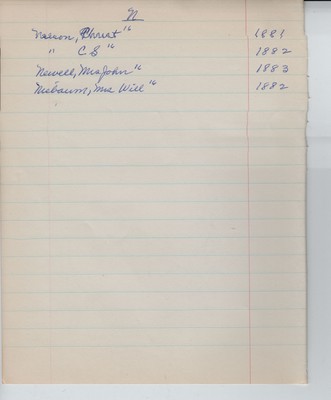 N
Nasson, Christ " 1881
" C S " 1882
Newell, Mrs John " 1883
Nusbaum, Mrs Will " 1882